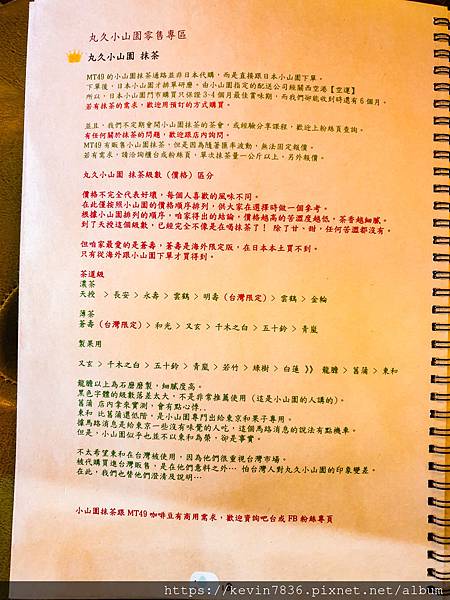 丸久小山園零售專區
丸久小山園 抹茶
MT49 的小山園抹茶通路並非日本代購，而是直接跟日本小山園下單。
下單後，日本小山園才排單研磨，由小山園指定的配送公司經關西空港【空運】
所以，日本小山園門市購買只保證 3-4 個月最佳賞味期，而我們卻能收到時還有 6 個月。
若有抹茶的需求，歡迎用預訂的方式購買。
並且，我們不定期會開小山園抹茶的茶會，或經驗分享課程，歡迎上粉絲頁查詢。
有任何關於抹茶的問題，歡迎跟店內詢問。
MT49 有販售小山園抹茶，但是因為隨著匯率波動，無法固定報價。
若有需求，請洽詢櫃台或粉絲頁，單次抹茶量一公斤以上，另外報價。
丸久小山園 抹茶級數（價格）區分
價格不完全代表好壞，每個人喜歡的風味不同。
在此僅按照小山園的價格順序排列，供大家在選擇時做一個參考。
根據小山園排列的順序，咱家得出的結論，價格越高的苦澀度越低，茶香越細膩。
到了天授這個級數，已經完全不像是在喝抹茶了！ 除了甘、甜，任何苦澀都沒有。
但咱家最愛的是蒼壽，蒼壽是海外限定版，在日本本土買不到。
只有從海外跟小山園下單才買得到。
茶道級
濃茶
天授 > 長安 > 永壽 > 雲鶴 > 明壽（台灣限定）> 雲鶴 > 金輪
薄茶
蒼壽（台灣限定）> 和光 > 又玄 > 千木之白 > 五十鈴 > 青嵐
製菓用
又玄 > 千木之白 > 五十鈴 > 青嵐 > 若竹 > 綠樹 > 白蓮 》》 龍膽 > 菖蒲 > 東和
龍膽以上為石磨磨製，細膩度高。
黑色字體的級數落差太大，不是非常推薦使用（這是小山園的人講的）。
菖蒲 店內拿來實測，會有點心悸..
東和 比菖蒲還低階，是小山園專門出給東京和菓子專用。
據馬路消息是給東京一些沒有味覺的人吃，這個馬路消息的說法有點機車。
但是，小山園似乎也並不以東和為榮，卻是事實。
不太希望東和在台灣被使用，因為他們很重視台灣市場。
被代購買進台灣販售，是在他們意料之外… 怕台灣人對丸久小山園的印象變差。
在此，我們也替他們澄清及說明…
小山園抹茶跟 MT49 咖啡豆有商用需求，歡迎資詢吧台或 FB 粉絲專頁
https://kevin7836.pixnet.net/album